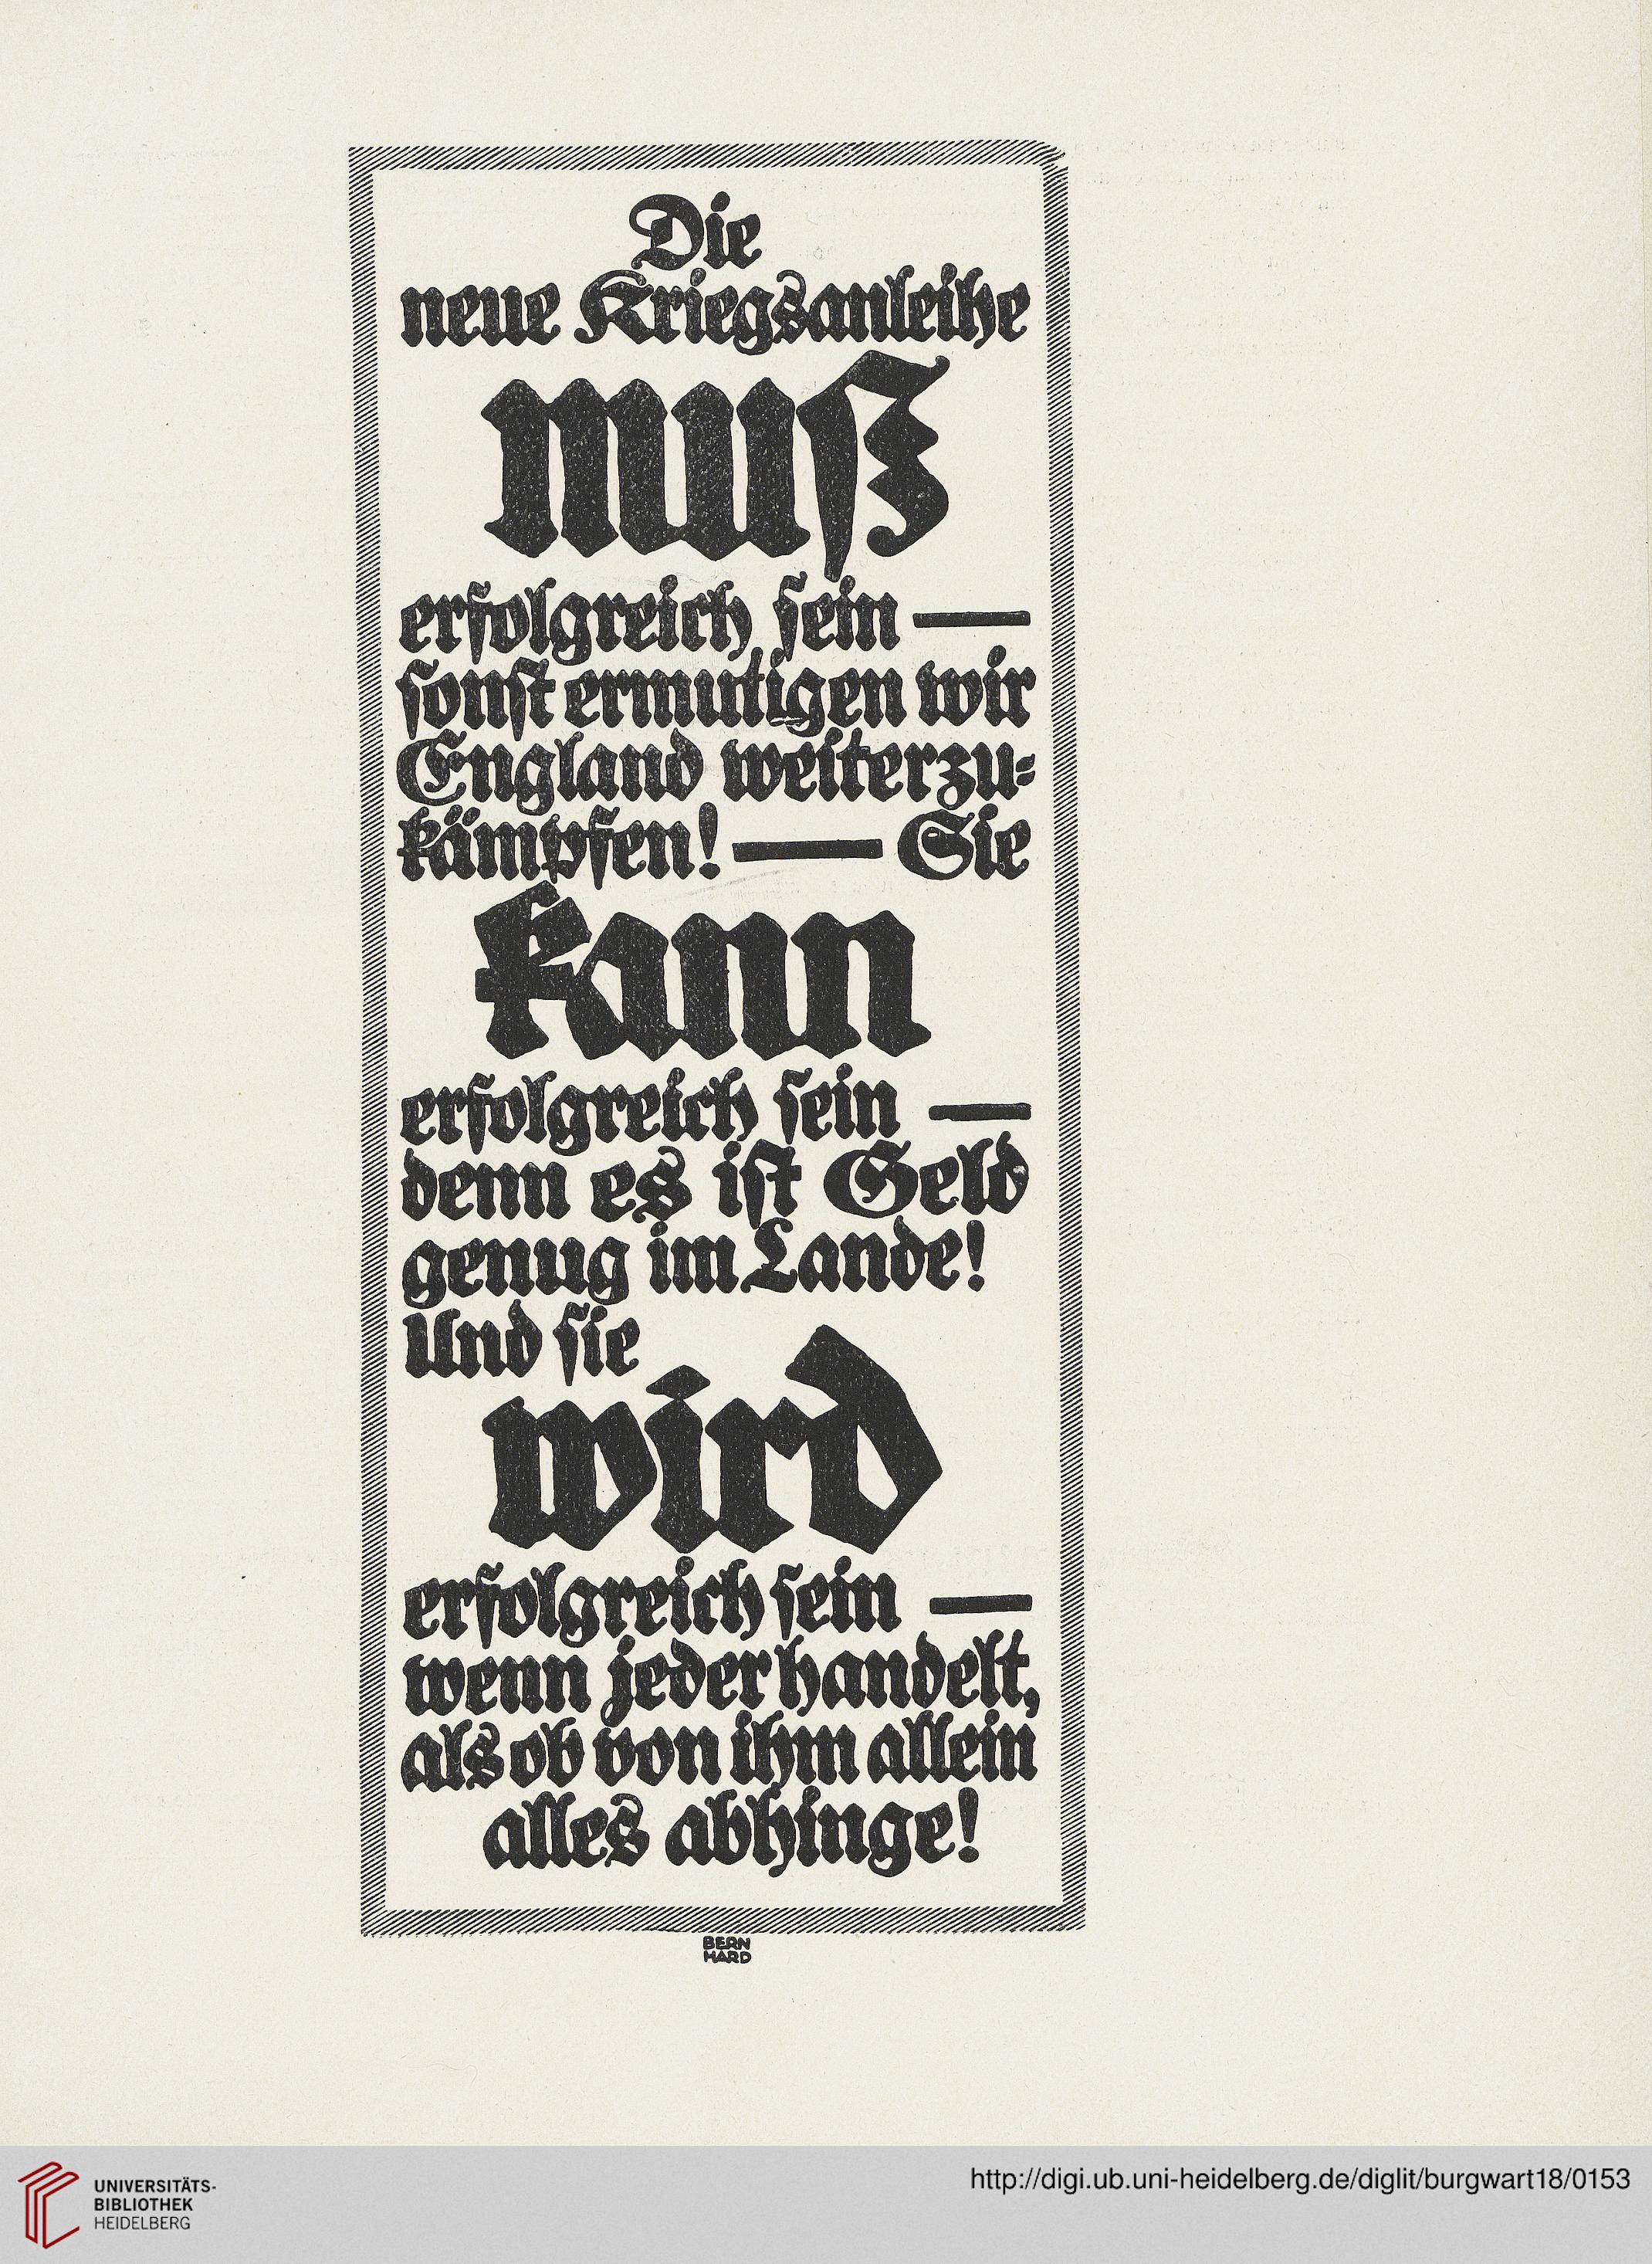 Die
neue Kriegsanleihe
muß
erfolgreich sein —
sonst ermutigen wir
England weiterzu=
kämpfen! — Sie
kann
erfolgreich sein —
denn es ist Geld
genug im Lande!
Und sie
wird
erfolgreich sein —
wenn jeder handelt,
als ob von ihm allein
alles abhinge!
BERN
HARD
UNIVERSITÄTS-
BIBLIOTHEK
HEIDELBERG
http://digi.ub.uni-heidelberg.de/diglit/burgwart18/0153